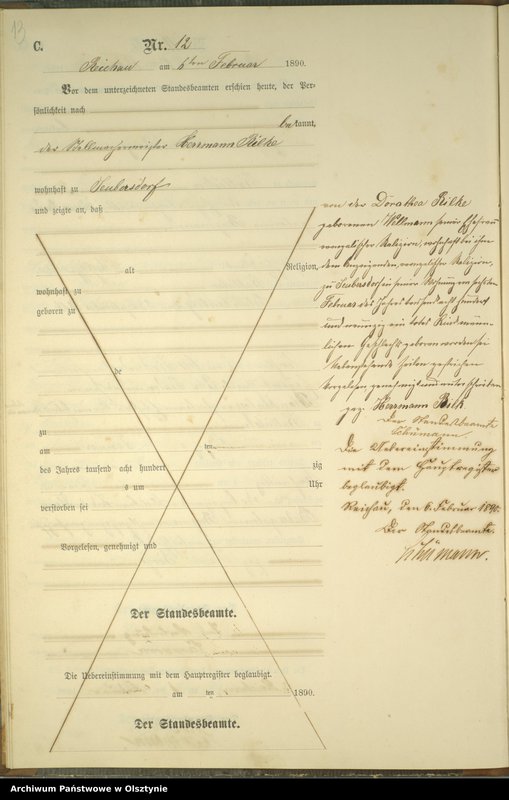 13
C. Nr. 12
am 6ten Februar 1890.
Vor dem unterzeichneten Standesbeamten erschien heute, der Per-
sönlichkeit nach
bekannt,
der Stellmachermeister Herrmann Rilke
wohnhaft zu Seubersdorf
und zeigte an, daß
alt Religion,
wohnhaft zu
geboren zu
de
zu
am ten
des Jahres tausend acht hundert zig
s um Uhr
verstorben sei
Vorgelesen, genehmigt und
Der Standesbeamte.
Die Uebereinstimmung mit dem Hauptregister beglaubigt.
am ten 1890.
Der Standesbeamte.
von der Dorathea Rilke
geborenen Willmann seiner Ehefrau
evangelischer Religion, wohnhaft bei ihm
dem Anzeigenden, evangelischer Religion,
zu Seubersdorf in seiner Wohnung am sechsten
Februar des Jahres tausend acht hundert
und neunzig ein todtes Kind männ-
lichen Geschlechts geboren worden sei
Nebenstehende Zeilen gestrichen
Vorgelesen genehmigt und unterschrieben
gez. Herrmann
Der Standesbeamte
Schümann.
Die Uebereinstimmung
mit dem Hauptregister
beglaubigt.
den 6. Februar 1890.
Der Standesbeamte.
Schümann.
Archiwum Państwowe w Olsztynie